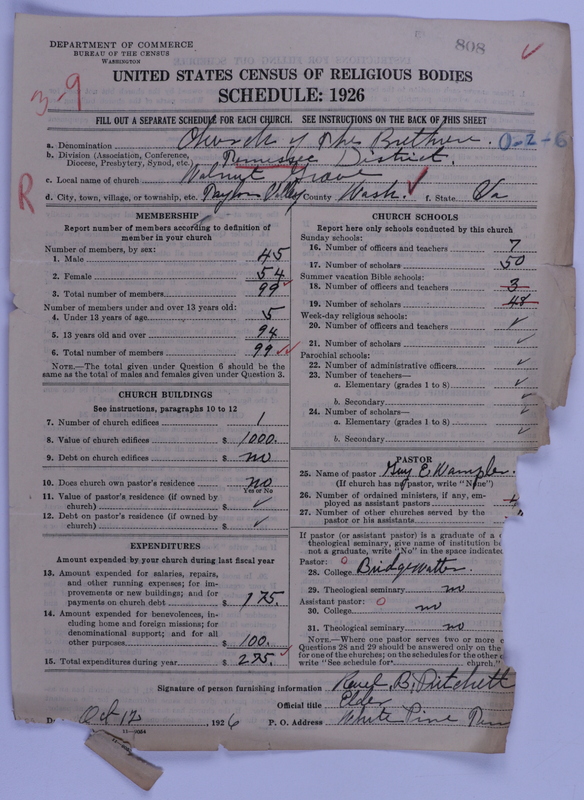 DEPARTMENT OF COMMERCE
BUREAU OF THE CENSUS
WASHINGTON
808
UNITED STATES CENSUS OF RELIGIOUS BODIES
SCHEDULE: 1926
3-9
FILL OUT A SEPARATE SCHEDULE FOR EACH CHURCH. SEE INSTRUCTIONS ON THE BACK OF THIS SHEET
a. Denomination Church of the Brethren. 0-2-6
b. Division (Association, Conference, Diocese, Presbytery, Synod, etc.) Tennessee District.
c. Local name of church Walnut Grove
R
d. City, town, village, or township, etc. Taylors Valley County Wash. f. State Va
MEMBERSHIP
Report number of members according to definition of
member in your church
Number of members, by sex:
1. Male 45
2. Female 54
3. Total number of members 99
Number of members under and over 13 years old:
4. Under 13 years of age 5
5. 13 years old and over 94
6. Total number of members 99
NOTE.—The total given under Question 6 should be the
same as the total of males and females given under Question 3.
CHURCH BUILDINGS
See instructions, paragraphs 10 to 12
7. Number of church edifices 1
8. Value of church edifices $ 1000.
9. Debt on church edifices $ no
10. Does church own pastor's residence no
Yes or No
11. Value of pastor's residence (if owned by
church) $ ✓
12. Debt on pastor's residence (if owned by
church) $ ✓
EXPENDITURES
Amount expended by your church during last fiscal year
13. Amount expended for salaries, repairs,
and other running expenses; for im-
provements or new buildings; and for
payments on church debt $ 175.
14. Amount expended for benevolences, in-
cluding home and foreign missions; for
denominational support; and for all
other purposes $ 100.
15. Total expenditures during year $ 275.
CHURCH SCHOOLS
Report here only schools conducted by this church
Sunday schools:
16. Number of officers and teachers 7
17. Number of scholars 50
Summer vacation Bible schools:
18. Number of officers and teachers 3
19. Number of scholars 48
Week-day religious schools:
20. Number of officers and teachers ✓
21. Number of scholars ✓
Parochial schools:
22. Number of administrative officers ✓
23. Number of teachers—
a. Elementary (grades 1 to 8) ✓
b. Secondary ✓
24. Number of scholars—
a. Elementary (grades 1 to 8) ✓
b. Secondary ✓
PASTOR
25. Name of pastor Guy E. Wampler.
(If church has no pastor, write "None")
26. Number of ordained ministers, if any, em-
ployed as assistant pastors
27. Number of other churches served by the
pastor or his assistants
If pastor (or assistant pastor) is a graduate of a c
theological seminary, give name of institution be
not a graduate, write "No" in the space indicated
Pastor: 0
28. College Bridgewater.
29. Theological seminary no
Assistant pastor: 0
30. College no
31. Theological seminary no
NOTE.—Where one pastor serves two or more c
Questions 28 and 29 should be answered only on the
for one of the churches; on the schedules for the other c
write "See schedule for church."
Signature of person furnishing information Reuel B. Pritchett
Official title Elder
D Oct 12, 1926 P. O. Address White Pine Tenn
11—9054